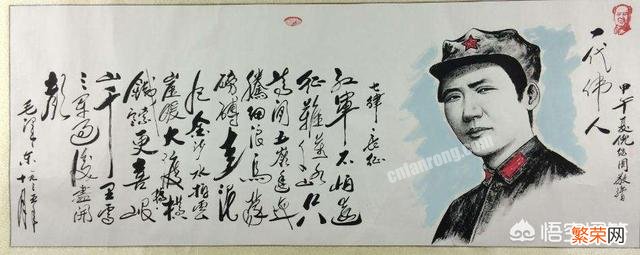 一代伟人
甲午夏倪
七律 长征
红軍不怕远
征難萬水千山只
等闲五岭逶迤
腾细浪乌蒙
磅礴走泥
丸金沙水拍雲
崖暖大渡桥横
铁索寒更喜岷
山千里雪
三军过后盡开
颜
毛泽东一九三五年
十月
cnfanrong.com
悟空问答
繁荣网